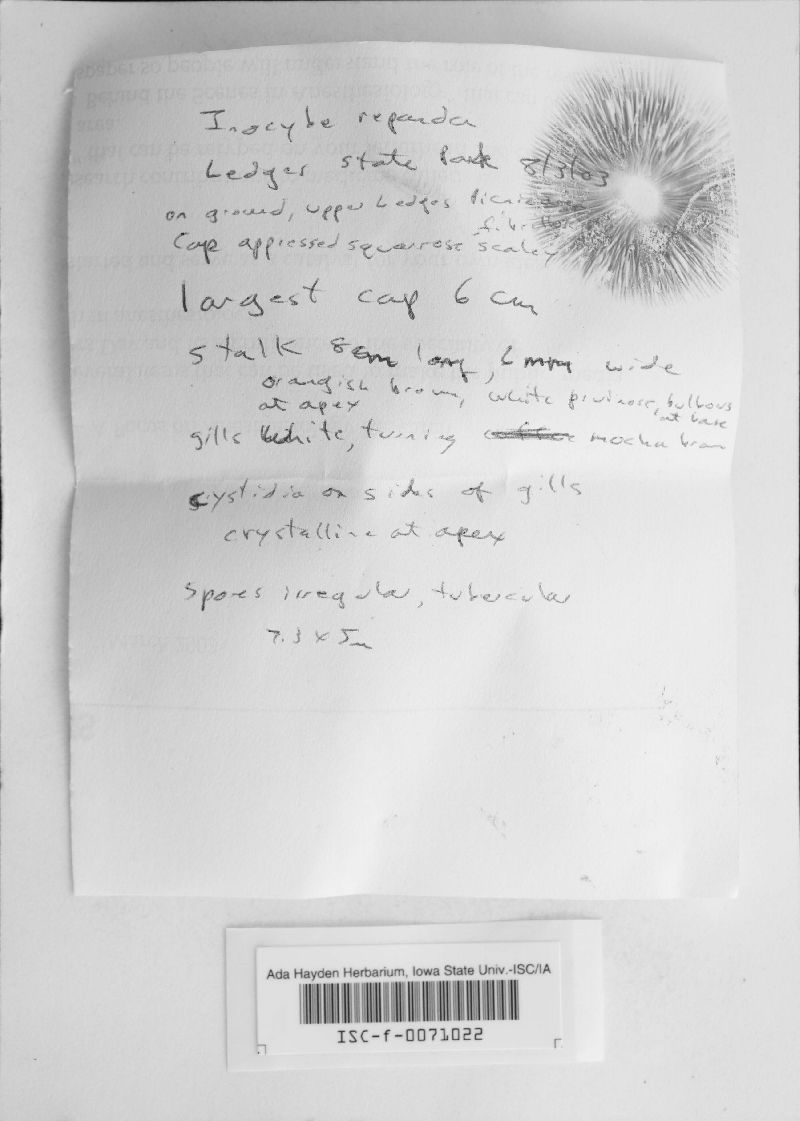 Inocybe repanda
Ledges State Park 8/3/03
on ground, upper Ledges Picnic area
fibrillose
Cap appressed squarrose scaley
largest cap 6 cm
stalk 8cm long, 6 mm wide
orangish brown, white pruinose, bulbous
at apex
at base
gills white, turning mocha brown
cystidia on sides of gills
crystalline at apex
Spores irregular, tubercular
7.3 x 5µ
Ada Hayden Herbarium, Iowa State Univ.-ISC/IA
ISC-f-0071022